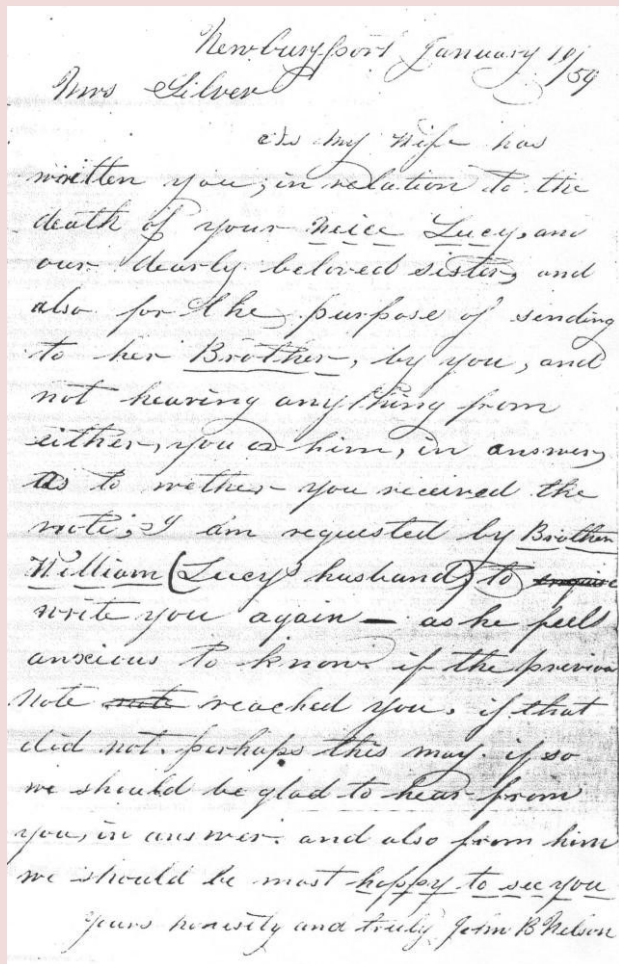 Newburyport January 10/59
Mrs Silver
As my Wife has
written you, in relation to the
death of your Neice Lucy, and
our dearly beloved sister, and
also for the purpose of sending
to her Brother, by you, and
not hearing anything from
either, you or him, in answer,
as to wether you received the
note, I am requested by Brother
William (Lucy husband) to enquire
write you again — as he feel
anxious to know if the previou
note note reached you. if that
did not. perhaps this may. if so
we should be glad to hear from
you, in answer. and also from him
we should be most happy to see you
Yours honestly and truly John B Nelson